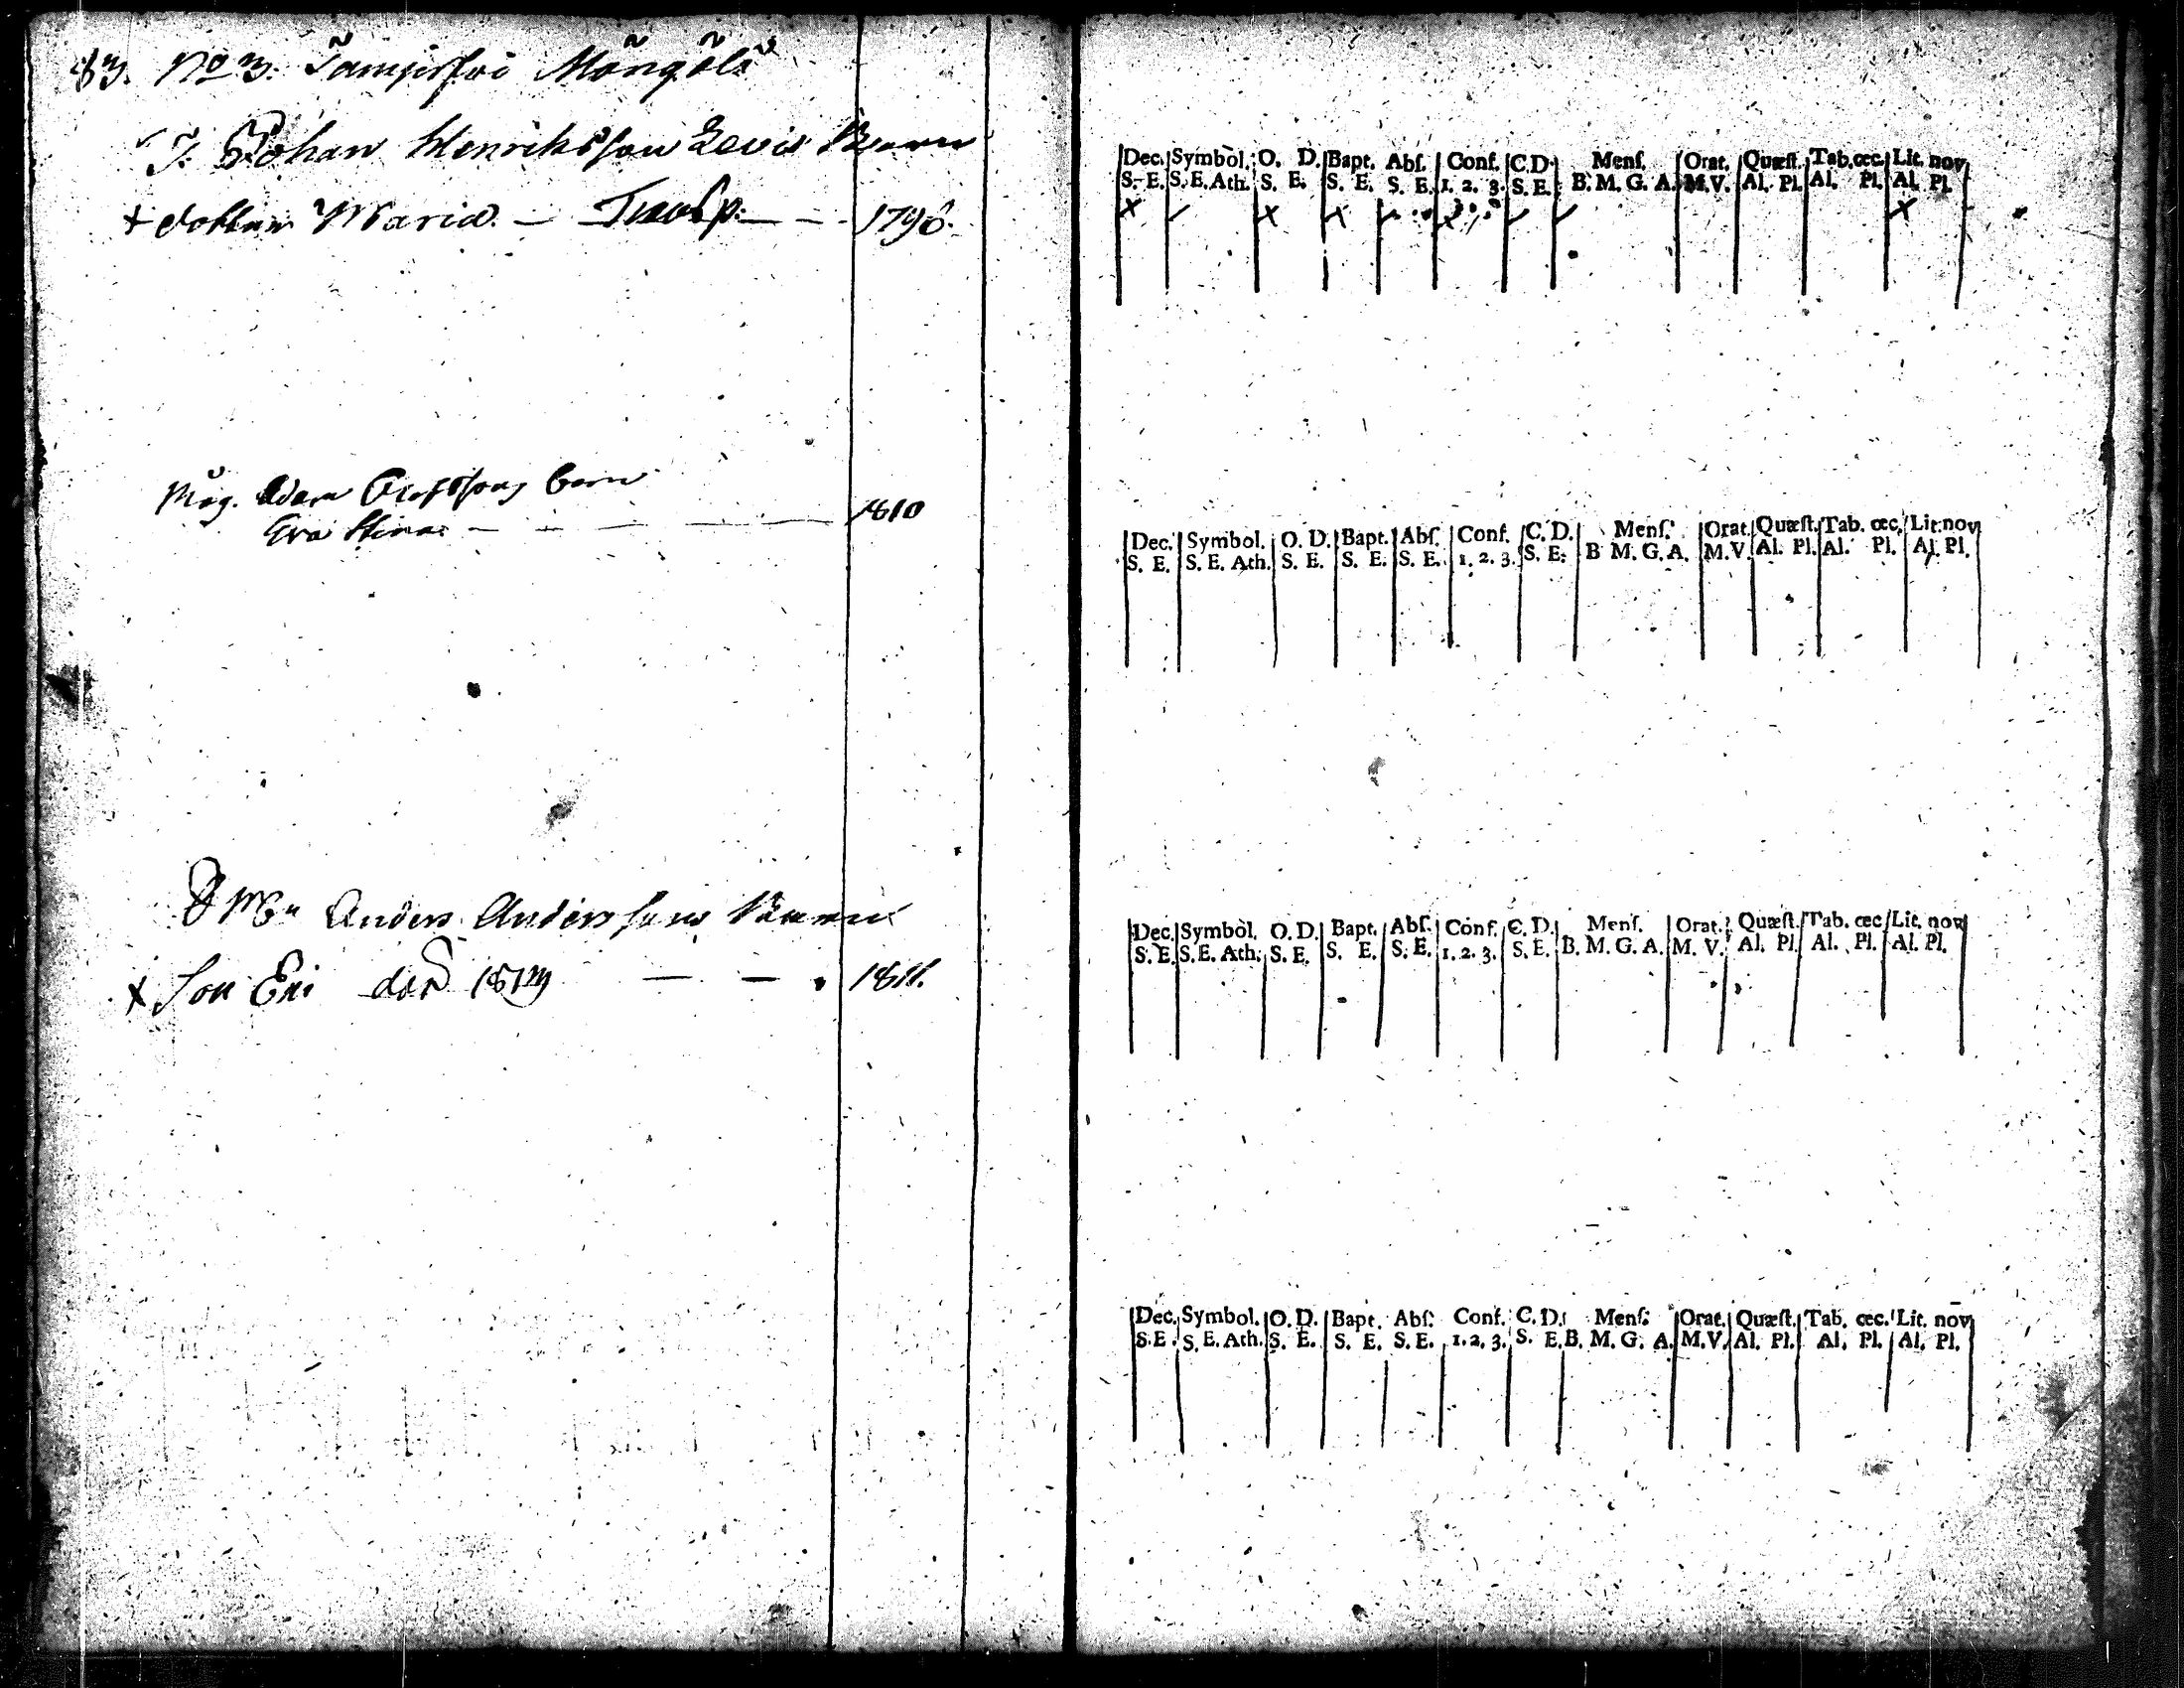 83. No 3. Tamperkoi Mängälä
T. Johan Henriksson Levis Barn
+ dotter Maria. — Transp: — — 1796.
Måg. Adam Olofssons barn
Eva Stina — — — — 1810
Anders Anderssons Barn
x Son Eri död 1813 — — 1811.
Dec. Symbol. O. D. Bapt. Abſ. Conf. C.D. Menſ. Orat. Quæſt. Tab. œc. Lit. nov
S. E. S. E. Ath. S. E. S. E. S. E. 1. 2. 3. S. E. B. M. G. A. M. V. Al. Pl. Al. Pl. Al. Pl.
Dec. Symbol. O. D. Bapt. Abſ. Conf. C. D. Menſ. Orat. Quæſt. Tab. œc. Lit. nov
S. E. S. E. Ath. S. E. S. E. S. E. 1. 2. 3. S. E. B M. G. A. M. V. Al. Pl. Al. Pl. Al. Pl.
Dec. Symbol. O. D. Bapt. Abſ. Conf. C. D. Menſ. Orat. Quæſt. Tab. œc. Lit. nov
S. E. S. E. Ath. S. E. S. E. S. E. 1. 2. 3. S. E. B. M. G. A. M. V. Al. Pl. Al. Pl. Al. Pl.
Dec. Symbol. O. D. Bapt. Abſ. Conf. C. D. Menſ. Orat. Quæſt. Tab. œc. Lit. nov
S. E. S. E. Ath. S. E. S. E. S. E. 1. 2. 3. S. E. B. M. G. A. M. V. Al. Pl. Al. Pl. Al. Pl.